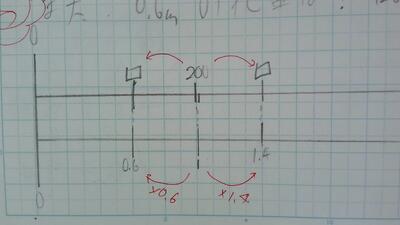 0.6m
0
□ 200 □
0.6 1 1.4
×0.6 ×1.4
0